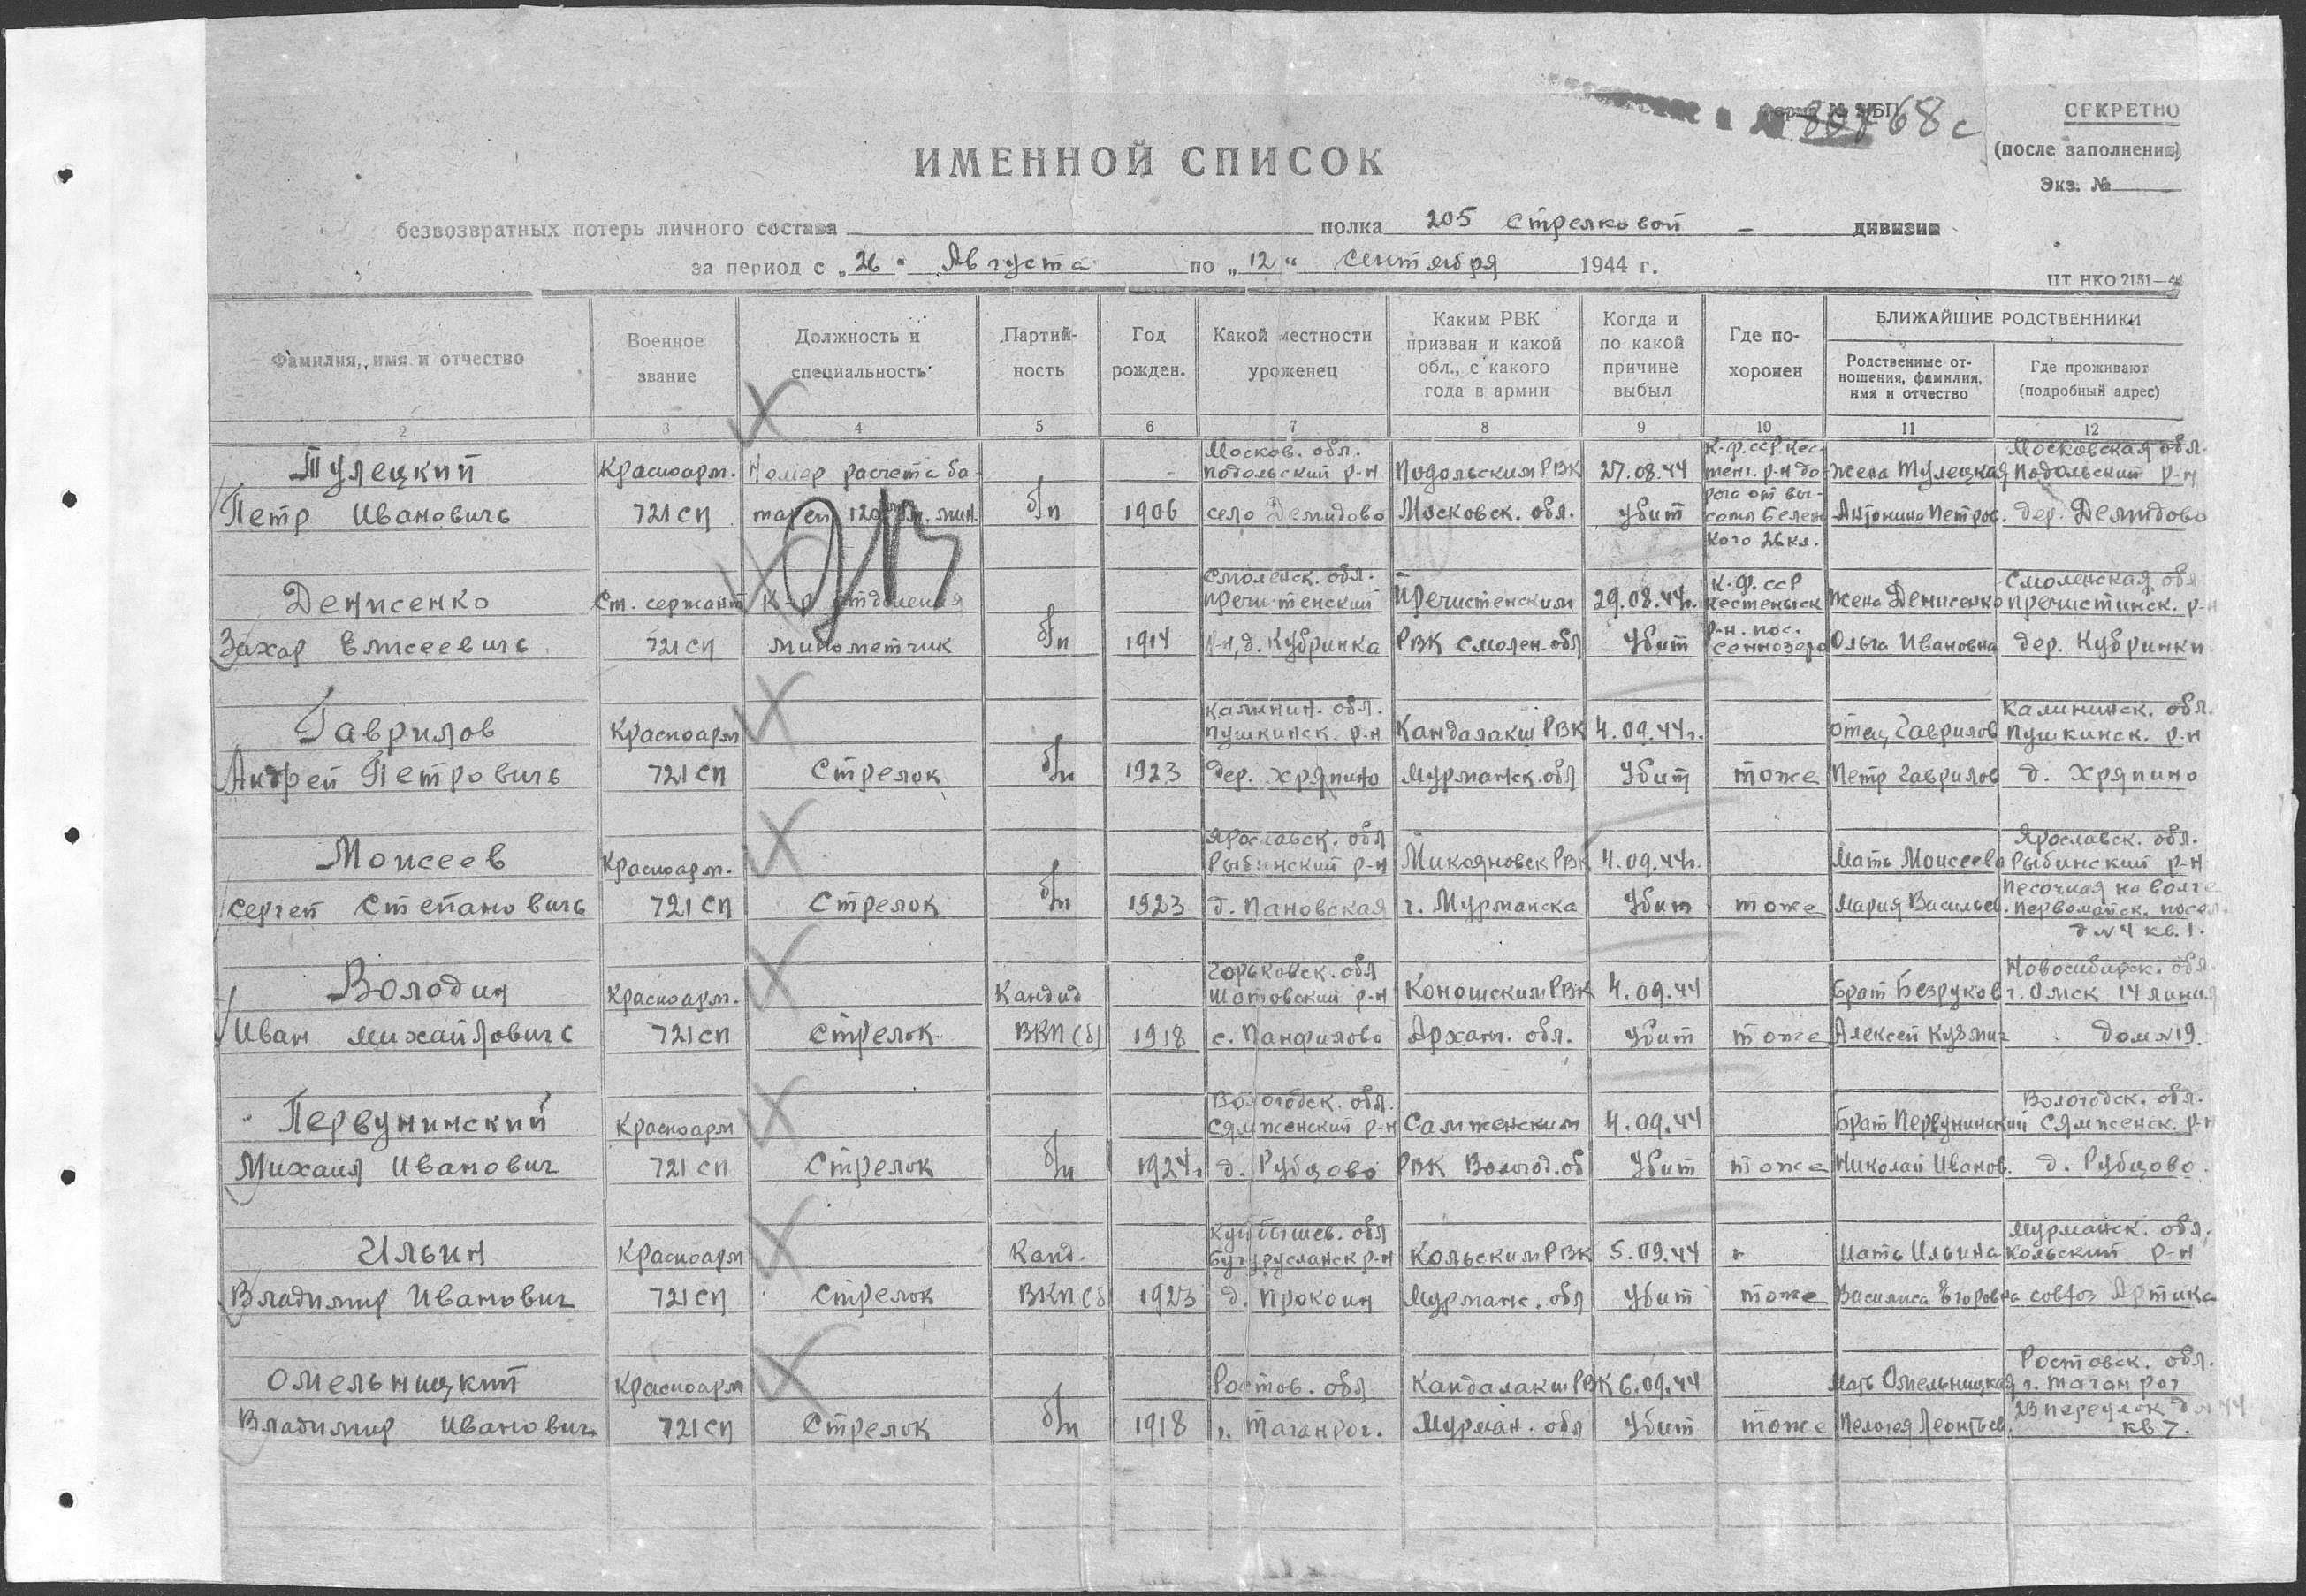 68 с
СЕКРЕТНО
(после заполнения)
Экз. №
ИМЕННОЙ СПИСОК
безвозвратных потерь личного состава полка 205 стрелковой - дивизии
за период с „26" Августа по „12" сентября 1944 г.
ЦТ НКО 2151—44
Фамилия, имя и отчество
Военное звание
Должность и специальность
Партийность
Год рожден.
Какой местности уроженец
Каким РВК призван и какой обл., с какого года в армии
Когда и по какой причине выбыл
Где похоронен
БЛИЖАЙШИЕ РОДСТВЕННИКИ
Родственные отношения, фамилия, имя и отчество
Где проживают (подробный адрес)
2 3 4 5 6 7 8 9 10 11 12
Тулецкий
Петр Ивановичь
Красноарм.
721 сп
Номер расчета ба-
тареи 120 м.м. мин.
б/п
1906
Москов. обл.
Подольский р-н
село Демидово
Подольским РВК
Московск. обл.
27.08.44
Убит
К-ф.сср. Кес-
тен. р-н до-
рога от вы-
соты Белен
кого 26 кл.
Жена Тулецкая
Антонина Петров.
Московская обл.
Подольский р-н
дер. Демидово
Денисенко
Захар Елисеевичь
Ст. сержант
721 сп
К-р отделения
минометчик
б/п
1914
Смоленск. обл.
Пречистенский
р-н, д. Кубринка
Пречистенским
РВК Смолен. обл
29.08.44г.
Убит
К-ф. сср
Кестеньгск
р-н. пос.
Сеннозеро
Жена Денисенко
Ольга Ивановна
Смоленская обл
Пречистинск. р-н
дер. Кубринки
Гаврилов
Андрей Петровичь
Красноарм
721 сп
Стрелок
б/п
1923
Калинин. обл.
Пушкинск. р-н
дер. Хряпино
Кандалакш РВК
Мурманск. обл
4.09.44г.
Убит
тоже
Отец Гаврилов
Петр Гаврилов
Калининск. обл.
Пушкинск. р-н
д. Хряпино
Моисеев
Сергей Степановичь
Красноарм.
721 сп
Стрелок
б/п
1923
Ярославск. обл
Рыбинский р-н
д. Пановская
Микояновск РВК
г. Мурманска
4.09.44г.
Убит
тоже
Мать Моисеева
Мария Васильев.
Ярославск. обл.
Рыбинский р-н
Песочная на волге
Первомайск. посел.
д № 4 кв. 1.
Володин
Иван Михайловичь
Красноарм.
721 сп
Стрелок
Кандид
ВКП(б)
1918
Горьковск. обл
Шатовский р-н
с. Панфилово
Коношским РВК
Архан. обл.
4.09.44
Убит
тоже
Брат Безруков
Алексей Кузмич
Новосибирск. обл.
г. Омск 14 линия
дом № 19.
Первунинский
Михаил Иванович
Красноарм
721 сп
Стрелок
б/п
1924г
Вологодск. обл.
Сямженский р-н
д. Рубцово
Самженским
РВК Вологод. об
4.09.44
Убит
тоже
Брат Первунинский
Николай Иванов.
Вологодск. обл.
Сямженск. р-н
д. Рубцово.
Ильин
Владимир Иванович
Красноарм
721 сп
Стрелок
Канд.
ВКП(б
1923
Куйбышев. обл
Бугурусланск р-н
д. Прокоин
Кольским РВК
Мурманс. обл
5.09.44
Убит
тоже
Мать Ильина
Василиса Егоровна
Мурманск. обл.
Кольский р-н
совхоз Артика
Омельницкий
Владимир Иванович
Красноарм
721 сп
Стрелок
б/п
1918
Ростов. обл
г. Таганрог.
Кандалакш РВК
Мурман. обл
6.09.44
Убит
тоже
Мать Омельницкая
Пелогея Леонтьев.
Ростовск. обл.
г. Таганрог
23 переулок д № 44
кв 7.